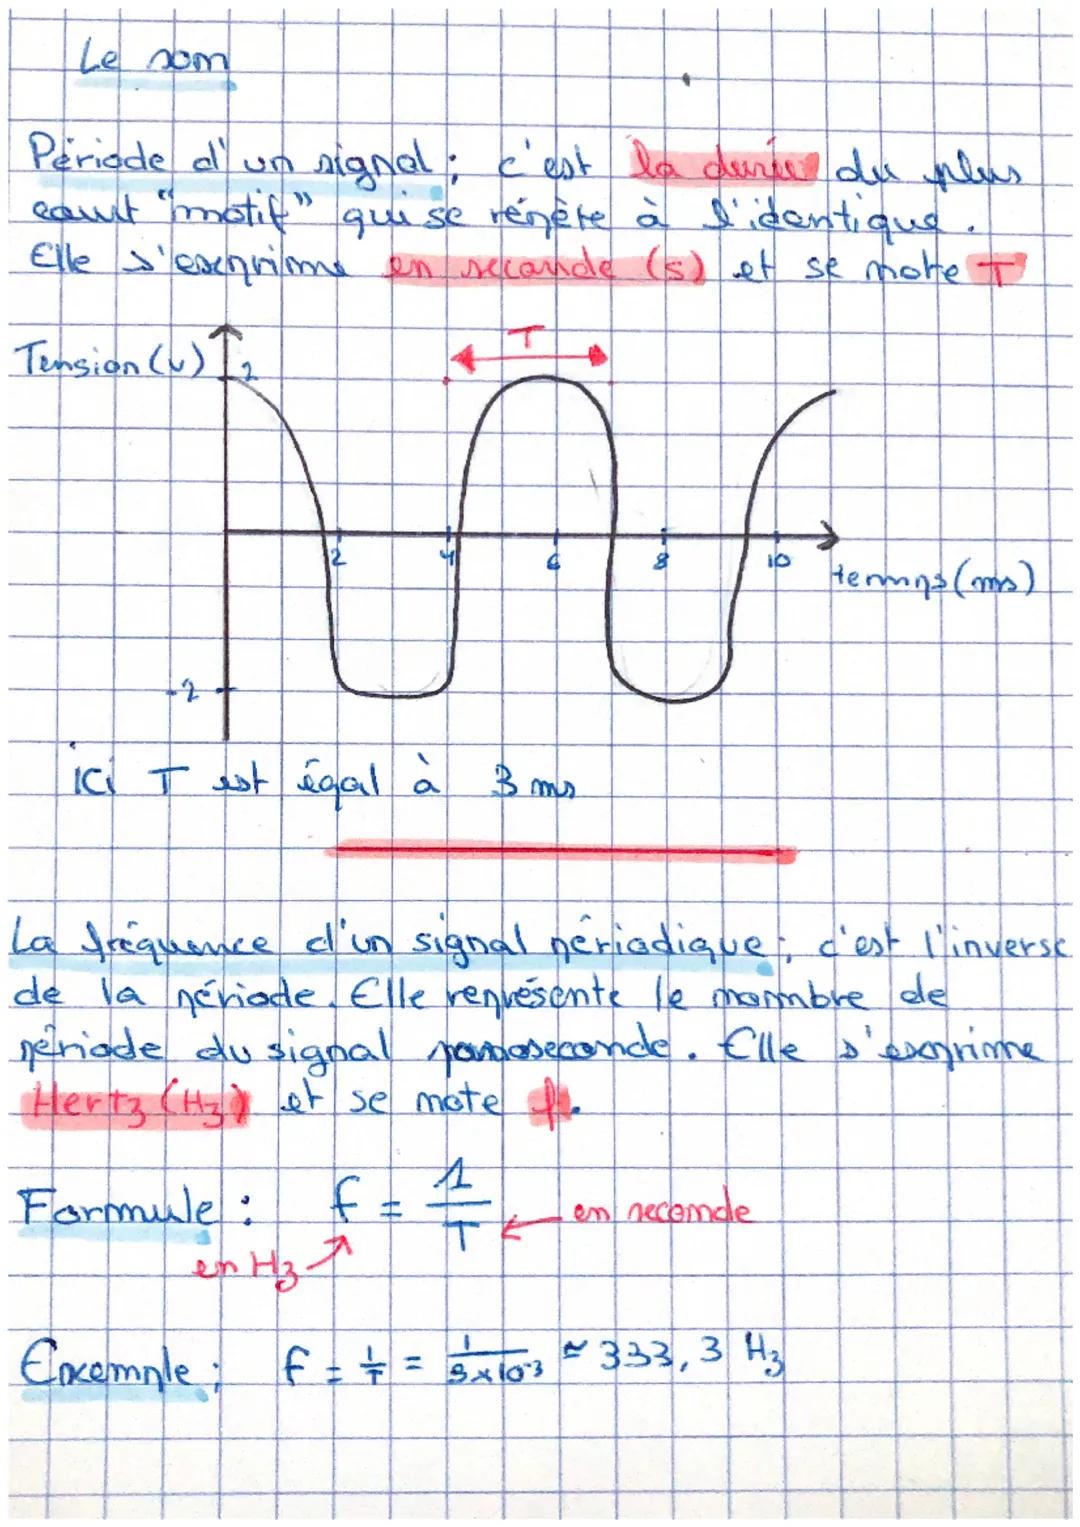 Le son
Période d'un signal : c'est la durée du plus
court "motif" qui se répète à l'identique.
Elle s'exprime en seconde (s) et se note T
T
Tension (v)
2
2
4
6
8
10
temps (ms)
-2
ici T est égal à 3 ms
La fréquence d'un signal périodique : c'est l'inverse
de la période. Elle représente le nombre de
période du signal seconde. Elle s'exprime
Hertz (Hz) et se note f.
Formule : f = 1/T en seconde
en Hz
Exemple : f = 1/T = 1/3x10-3 ≈ 333,3 Hz